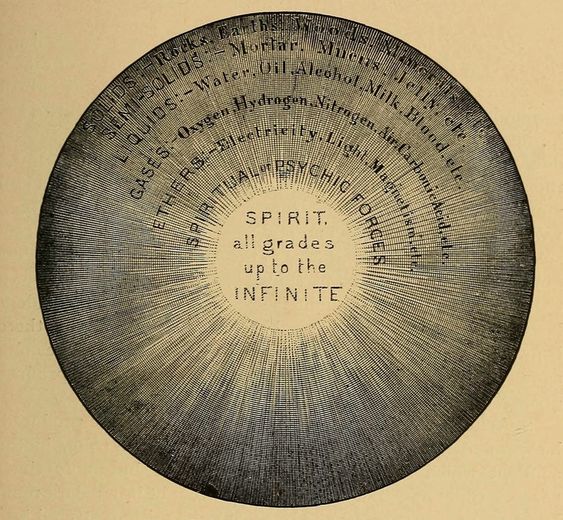 SOLIDS:—Rocks, Earths, Woods,
SEMI-SOLIDS:—Mortar, Mucus, Jelly, etc.
LIQUIDS:—Water, Oil, Alcohol, Milk, Blood, etc.
GASES:—Oxygen, Hydrogen, Nitrogen, Air, Carbonic Acid, etc.
ETHERS:—Electricity, Light, Magnetism, etc.
SPIRITUAL or PSYCHIC FORCES
SPIRIT,
all grades
up to the
INFINITE